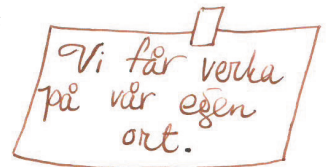 Vi får verka
på vår egen
ort.